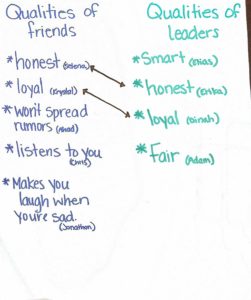 Qualities of
friends
*honest (Selena)
*loyal (Krystal)
*won't spread
rumors (Ahad)
*listens to you
(Chris)
*Makes you
laugh when
you're sad.
(Jonathon)
Qualities of
leaders
*Smart (Elias)
*honest (Erika)
*loyal (Dinah)
*Fair (Adam)